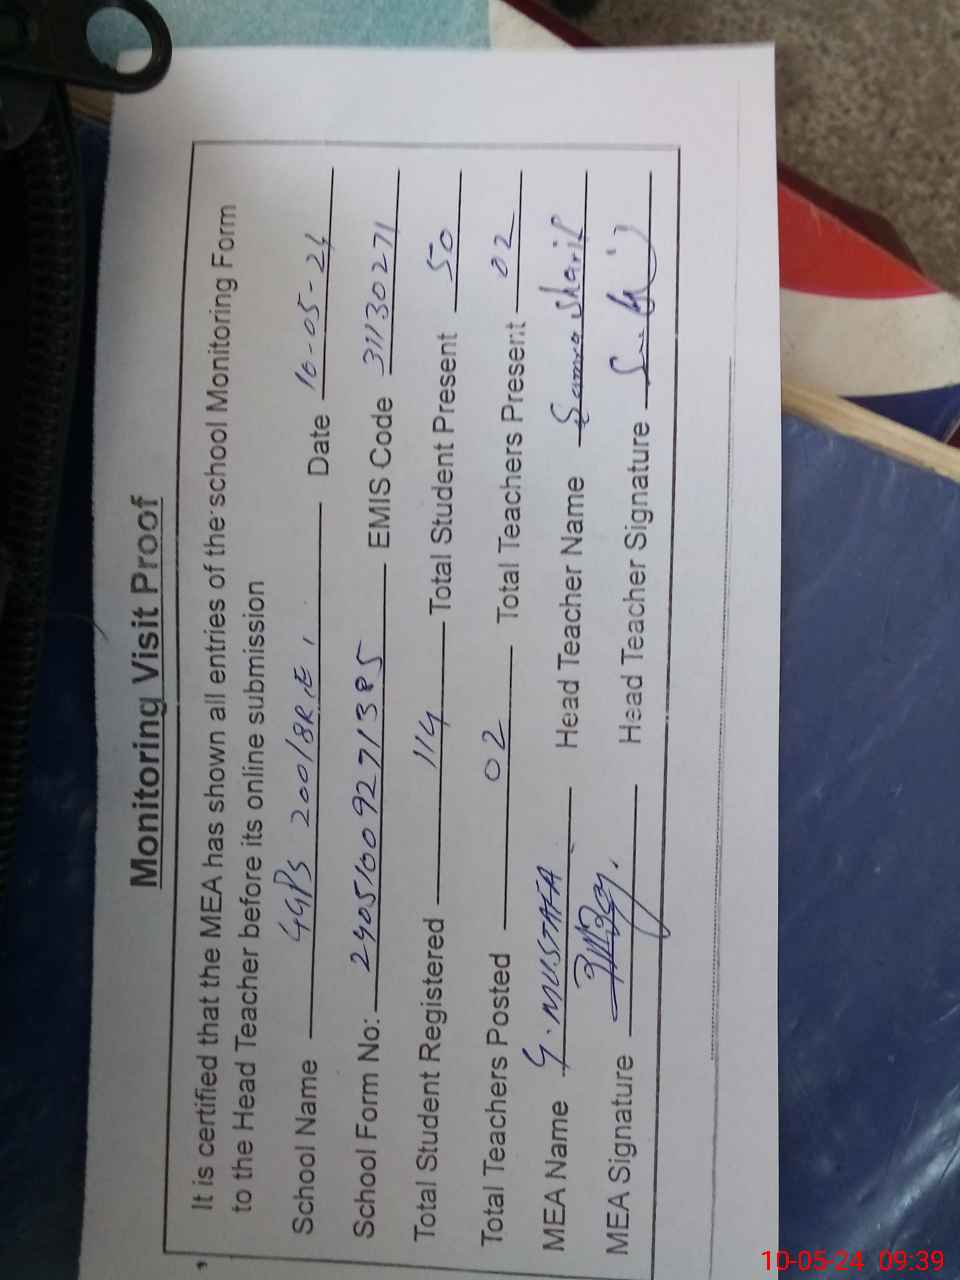 Monitoring Visit Proof
It is certified that the MEA has shown all entries of the school Monitoring Form
to the Head Teacher before its online submission
School Name GGPS 200/8R, E, Date 10-05-24
School Form No: 24051009271385 EMIS Code 31130271
Total Student Registered 114 Total Student Present 50
Total Teachers Posted 02 Total Teachers Present 02
MEA Name G. MUSTAFA Head Teacher Name Samra Sharif
MEA Signature Head Teacher Signature
10-05-24 09:39